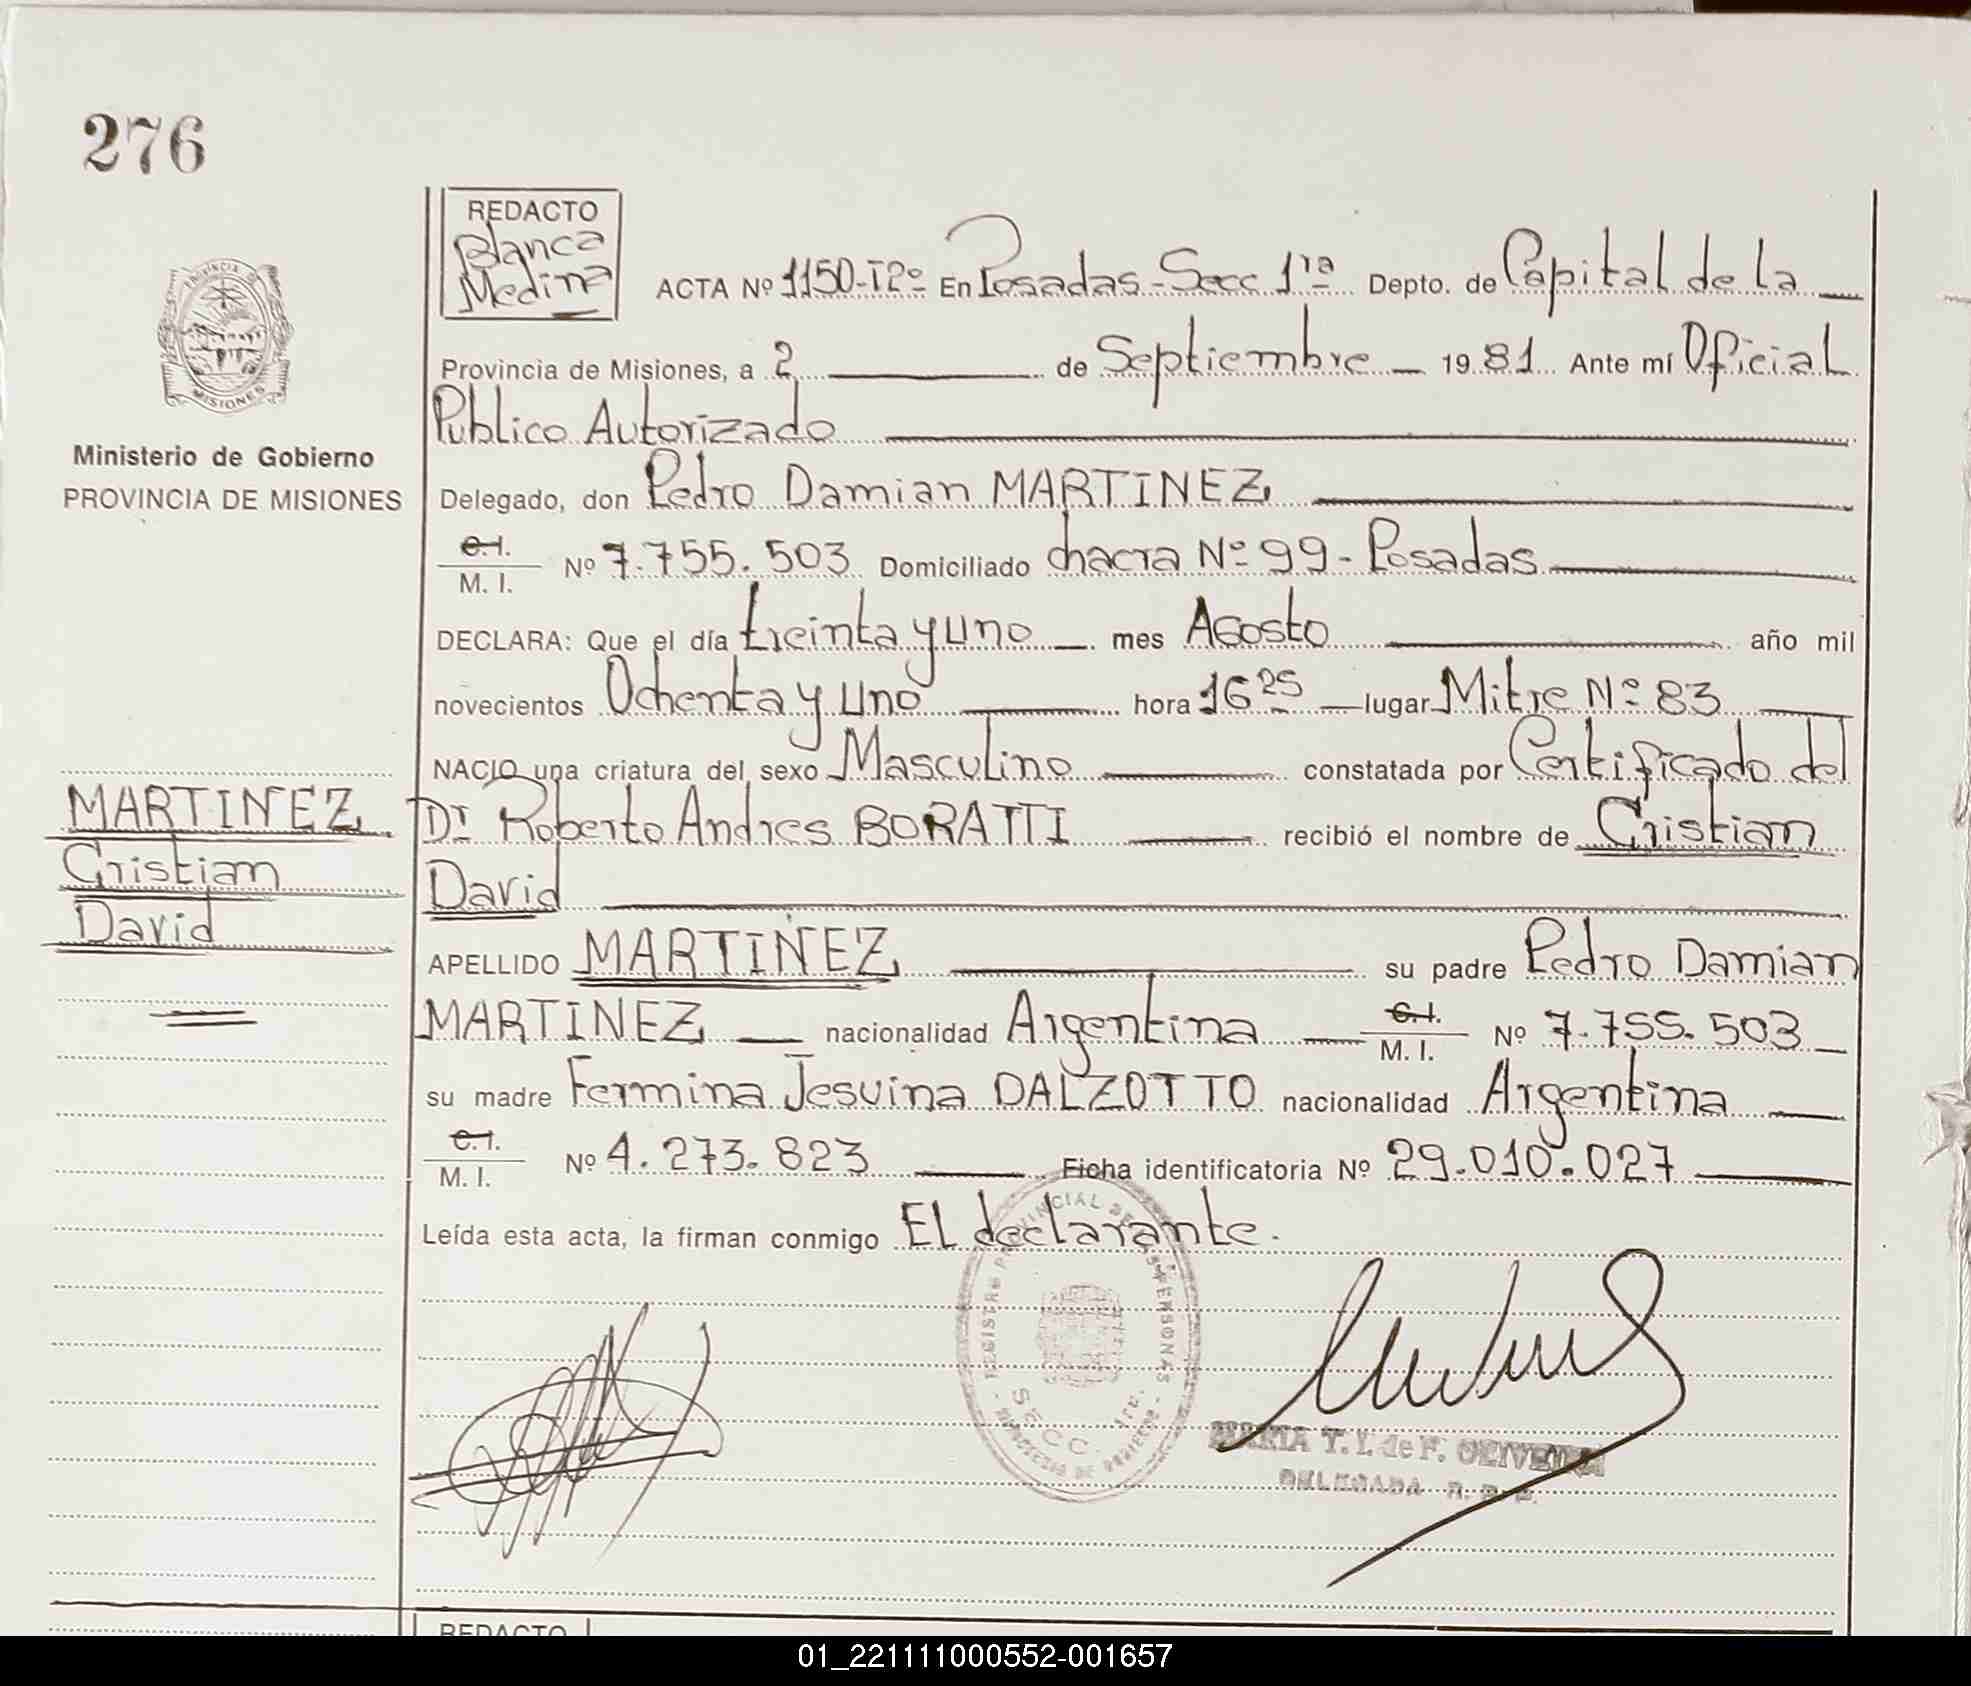 276
REDACTO
Blanca
Medina
ACTA Nº 1150-Tº2º En Posadas-Secc 1ra Depto. de Capital de la
Provincia de Misiones, a 2 de Septiembre 1981 Ante mí Oficial
Público Autorizado
Ministerio de Gobierno
PROVINCIA DE MISIONES
Delegado, don Pedro Damian MARTINEZ
C.I.
M. I. Nº 7.755.503 Domiciliado chacra Nº 99 - Posadas
DECLARA: Que el día treinta y uno mes Agosto año mil
novecientos Ochenta y uno hora 16 25 lugar Mitre Nº 83
NACIO una criatura del sexo Masculino constatada por Certificado del
Dr Roberto Andres BORATTI recibió el nombre de Cristian
David
MARTINEZ
Cristian
David
APELLIDO MARTINEZ su padre Pedro Damian
MARTINEZ nacionalidad Argentina C.I. M. I. Nº 7.755.503
su madre Fermina Jesuina DALZOTTO nacionalidad Argentina
C.I.
M. I. Nº 4.273.823 Ficha identificatoria Nº 29.010.027
Leída esta acta, la firman conmigo El declarante.
REGISTRO PROVINCIAL DE LAS PERSONAS
SECC. 1ra.
MINISTERIO DE GOBIERNO
MARIA T. I. de F. OLIVEIRA
DELEGADA R. P. P.
REDACTO
01_221111000552-001657